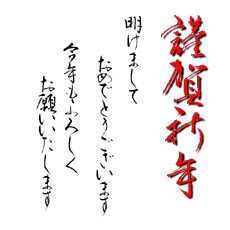 謹賀新年
明けまして
おめでとうございます
今年もよろしく
お願いいたします